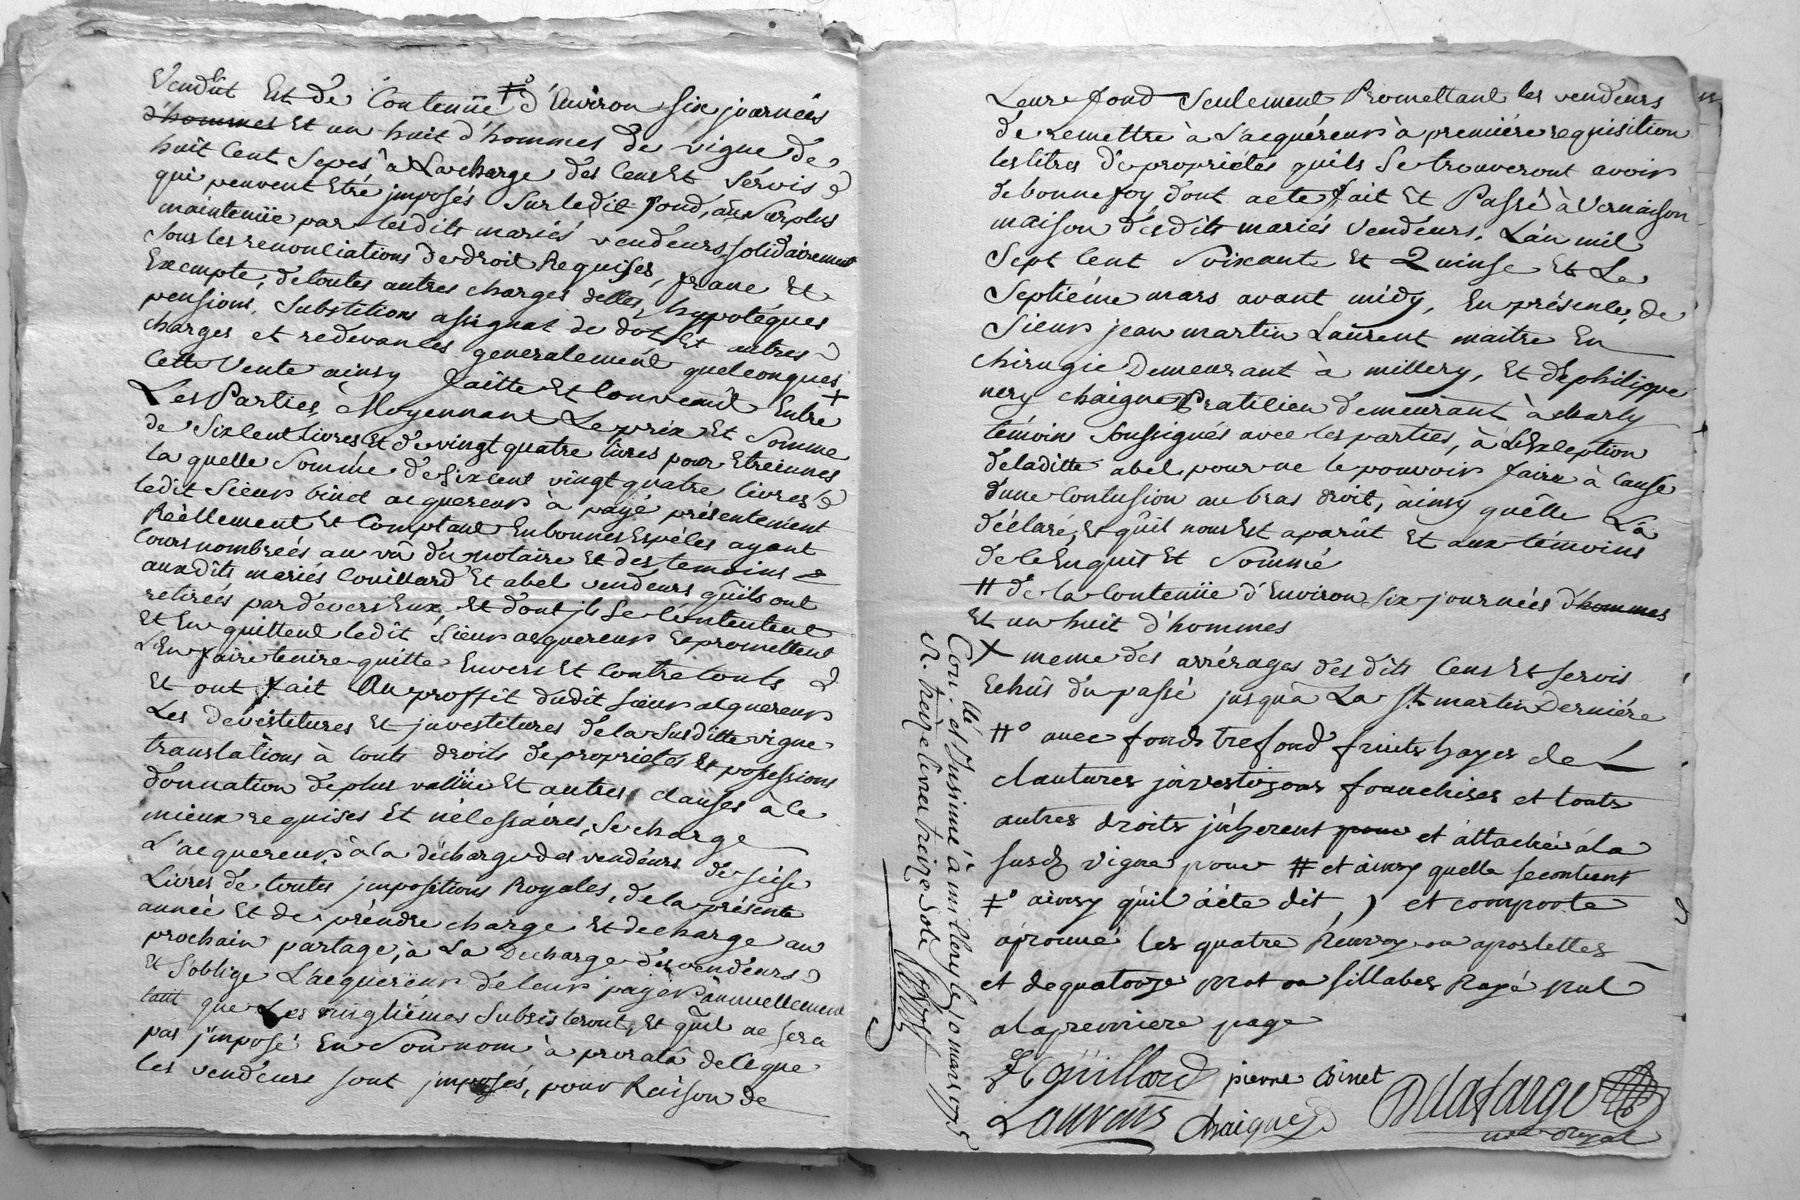 Vendüt Et de Contenüe ⧧° d'Environ Six journées
d'hommes Et un huit d'hommes de vigne de
huit Cent Sepes à La charge des Cens Et Servis
qui peuvent Etre imposés Sur ledit fond, au Surplus
maintenüe par lesdits mariés vendeurs, solidairement
sous les renonciations de droit Requises, franc Et
Exempte, de toutes autres charges delles, hypotéques
pensions, Substitions assignat de dot Et autres
charges et redevances generalement quelconques +
Cette Vente ainsy faitte Et Convenüe Entre
Les Parties, Moyennant Le prix Et Somme
de Six Cent livres Et de vingt quatre livres pour Etreinnes
la quelle Somme de Six cent vingt quatre livres
ledit Sieur binet acquereur à payé présentement
Réellement Et Comptant En bonnes Espéces ayant
Cours nombreés au vû du notaire Et des temoins
auxdits mariés Couillard Et abel vendeurs qu'ils ont
retirées par devers Eux, Et dont jls Se Contentent
Et En quittent ledit Sieur acquereur Et promettent
L'En faire tenire quitte Envers Et Contre touts
Et ont fait Au proffit dudit Sieur acquereur
Les devétitures Et jnvestitures de la Susditte vigne
translations à touts droits de propriétés Et possessions
donnation de plus vallüe Et autres clauses à ce
mieux requises Et nécessaires, Se charge
L'acquereur à la décharge des vendeurs de seise
Livres de toutes jmpositions Royales, de la présente
année Et de prendre charge Et decharge au
prochain partage, à La Decharge des vendeurs
Et S'oblige L'acquereur de leur payer annuellement
tant que Les vingtiémes Subsisteront, Et qu'il ne Sera
pas jmposé En Son nom à prorata de ce que
les vendeurs sont jmposés, pour Raison de
Leur fond Seulement Promettant les vendeurs
de remettre à L'acquéreur à premiére requisition
les titres de propriétés quils Se trouveront avoir
de bonne foy, dont acte fait Et Passé à Vernaison
maison desdits mariés Vendeurs, L'an mil
Sept Cent Soixante Et Quinse Et Le
Septiéme mars avant midy, En présence, de
Sieur jean martin Laurent maitre En
Chirugie Demeurant à millery, Et de philippe
nery chaigne Praticien demeurant à charly
témoins Soussignés avec les parties, à L'Exception
de laditte abel pour ne le pouvoir faire à Cause
d'une Contusion au bras droit, ainsy qu'elle L'a
déclaré, Et qu'il nous Est aparût Et aux témoins
de ce Enquis Et Sommé
# de la Contenüe d'Environ Six journées d'hommes
Et un huit d'hommes
+ meme des arrérages des dits Cens Et servis
Echûs du passé jusqu'à La St martin Derniére
#° avec fonds trefond fruits hayes de
clautures jnvestizons franchises et touts
autres droits jnherent pour et attachés à la
susd vigne pour # et ainsy quelle se contient
⧧° ainsy qu'il a éte dit, ) et comporte
aprouvé les quatre Renvoy ou apostilles
et de quatorze mot ou sillabes Rayé nul
a la premiere page
Couillard pierre Binet Delafarge
Laurens Chaigne
not Royal
Con.llé et Insinué à millery le 10 mars 1775
R. treize livres treize sols